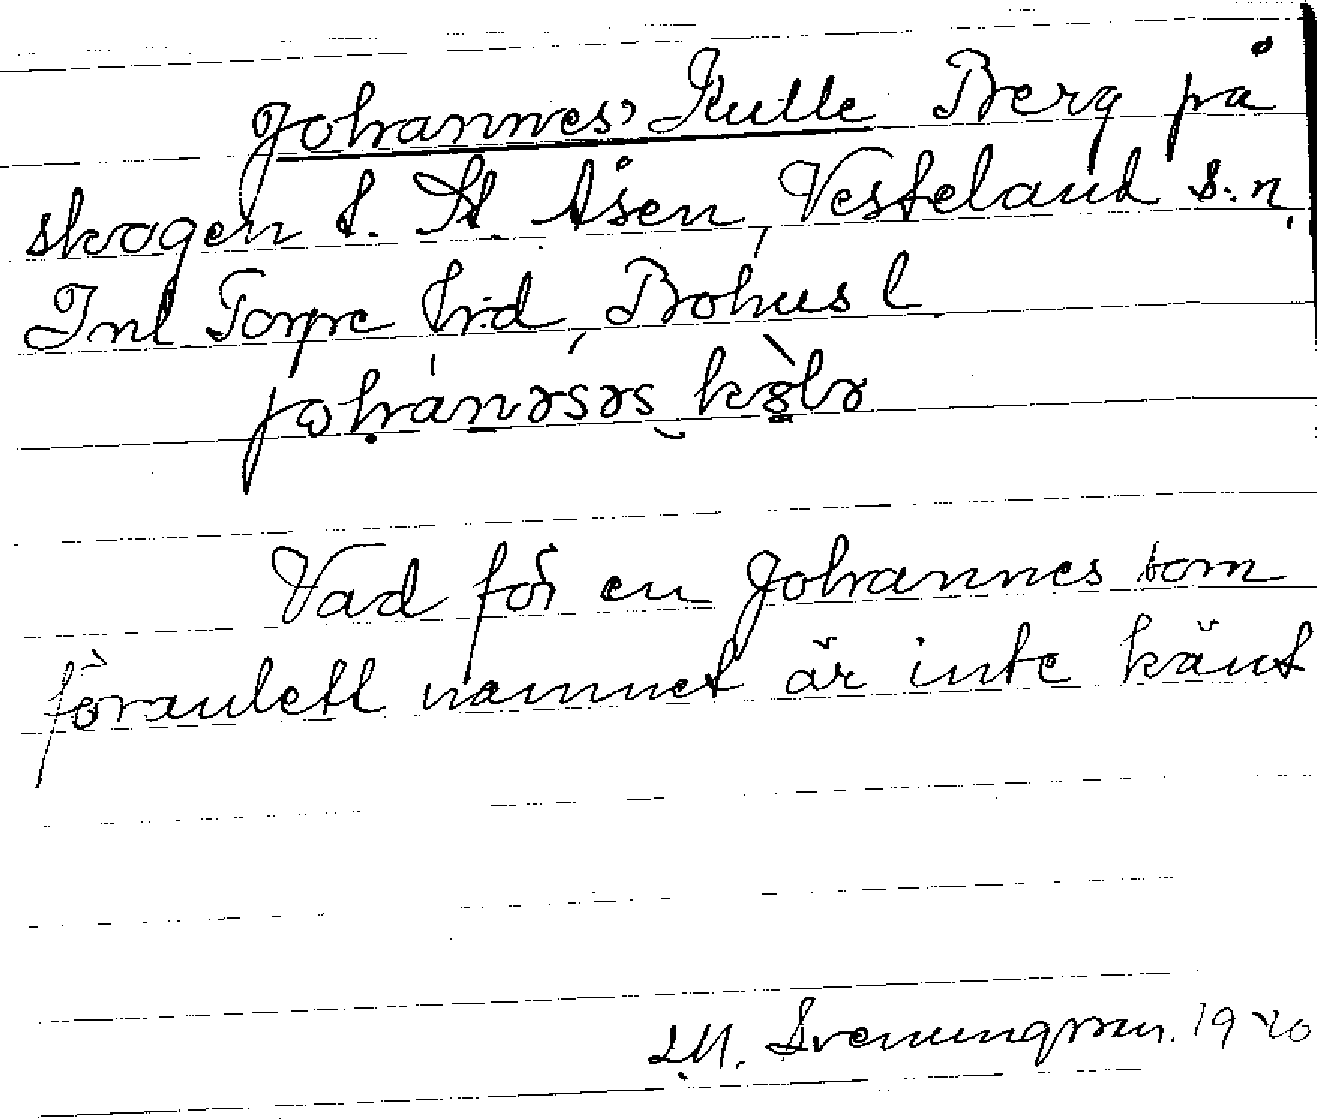 Johannes' Kulle Berg på
skogen t. St. Åsen, Vesteland s:n,
Inl Torpe hrd, Bohusl.
johánəsəs kɵ̀lə
Vad för en Johannes som
föranlett namnet är inte känt
Svenungsson. 1920